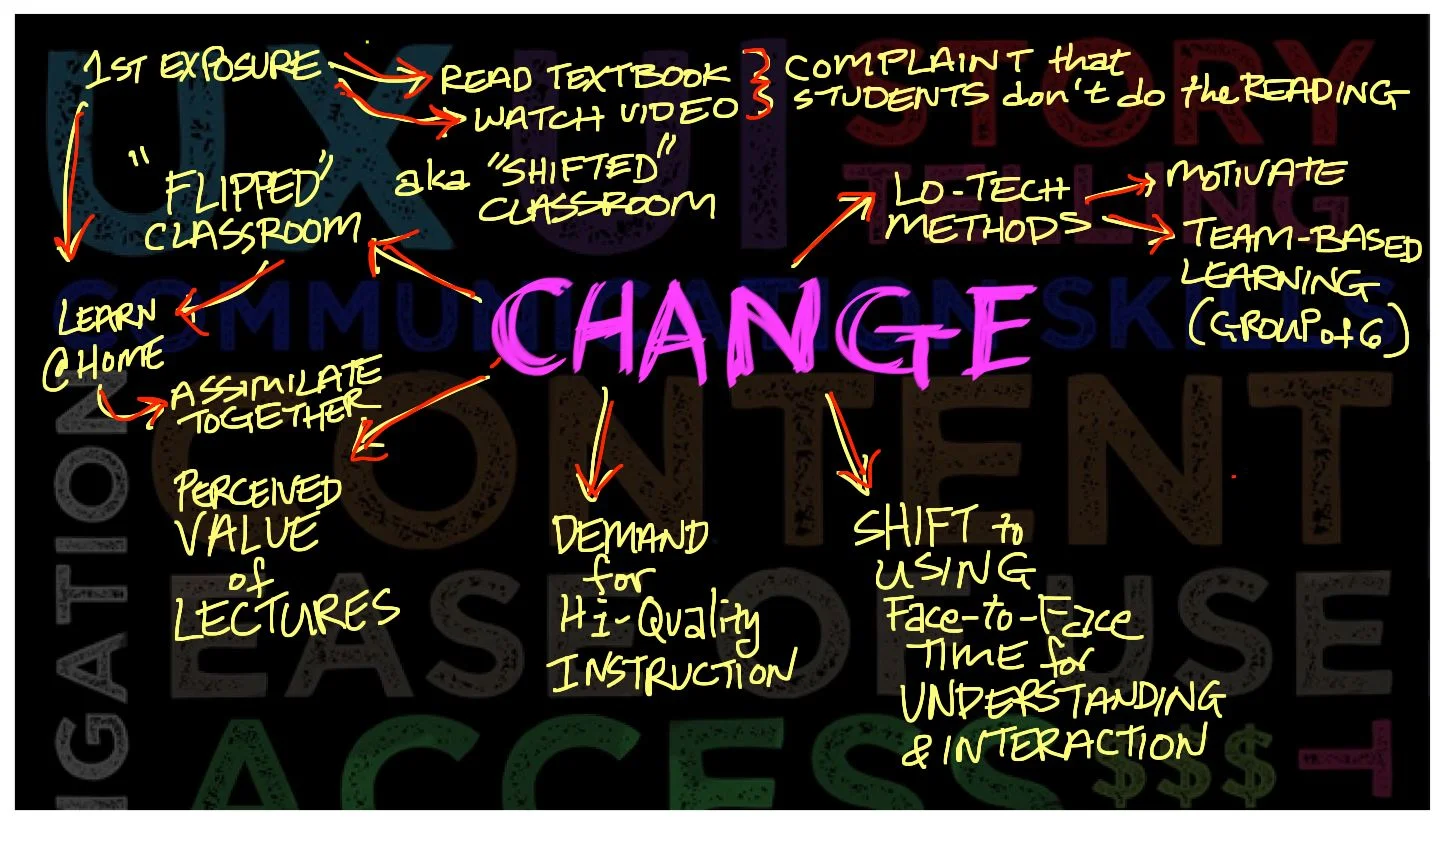 1ST EXPOSURE
READ TEXTBOOK
WATCH VIDEO
COMPLAINT that
STUDENTS don't do the READING
"FLIPPED"
CLASSROOM
aka "SHIFTED"
CLASSROOM
LO-TECH
METHODS
MOTIVATE
TEAM-BASED
LEARNING
(GROUP of 6)
LEARN
@ HOME
ASSIMILATE
TOGETHER
CHANGE
PERCEIVED
VALUE
of
LECTURES
DEMAND
for
Hi-Quality
INSTRUCTION
SHIFT to
USING
Face-to-Face
TIME for
UNDERSTANDING
& INTERACTION
UX UI STORY
TELLING
COMMUNICATION SKILLS
IGATION
CONTENT
EASE OF USE
ACCESS
$$$